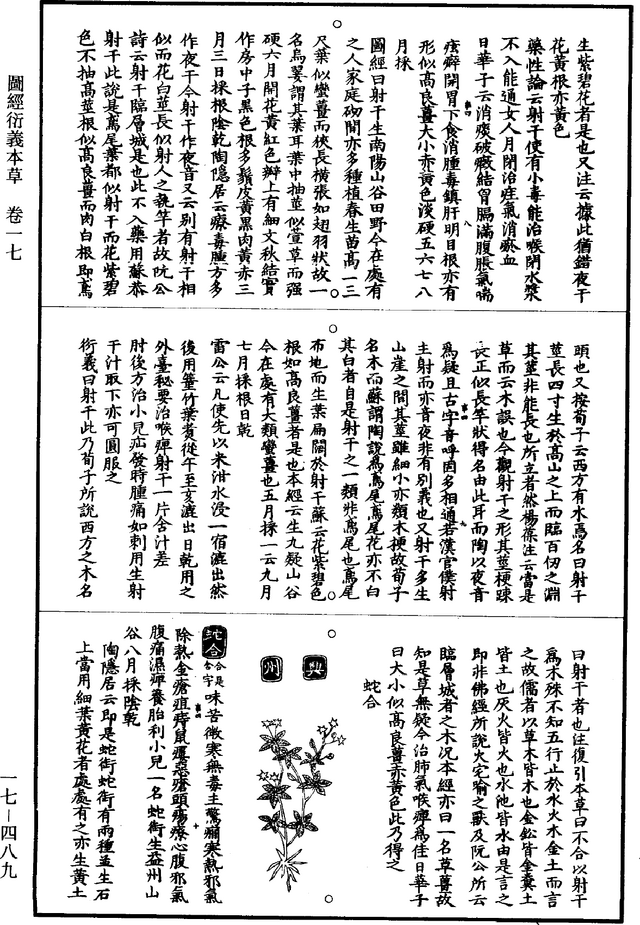 圖經衍義本草　卷一七
生紫碧花者是也又注云據此猶錯夜干
花黃根亦黃色
藥性論云射干使有小毒能治喉閉水漿
不入能通女人月閉治疰氣消瘀血
日華子云消痰破癥結胷膈滿腹脹氣喘
痃癖開胃下食消腫毒鎮肝明目根亦有
形似高良薑大小赤黃色淡硬五六七八
月採
圖經曰射干生南陽山谷田野今在處有
之人家庭砌間亦多種植春生苗高一三
尺葉似蠻薑而狹長橫張如翅羽狀故一
名烏翣謂其葉耳葉中抽莖似萱草而强
硬六月開花黃紅色瓣上有細文秋結實
作房中子黑色根多鬚皮黃黑肉黃赤三
月三日採根陰乾陶隱居云療毒腫方多
作夜干今射干作夜音又云別有射干相
似而花白莖長似射人之執竿者故阮公
詩云射干臨層城是也此不入藥用蘇恭
射干此說是鳶尾葉都似射干而花紫碧
色不抽高莖根似高良薑而肉白根即鳶
頭也又按荀子云西方有木焉名曰射干
莖長四寸生於高山之上而臨百仞之淵
其莖非能長也所立者然楊葆注云當是
草而云木誤也今觀射干之形其莖梗踈
長正似長竿狀得名由此耳而陶以夜音
爲疑且古字音呼固多相通若漢官僕射
主射而亦音夜非有別義也又射干多生
山崖之間其莖雖細小亦類木梗故荀子
名木而蘇謂陶說爲鳶尾鳶尾花亦不白
其白者自是射干之一類非鳶尾也鳶尾
布地而生葉扁闊於射干蘇云花紫碧色
根如高良薑者是也本經云生九疑山谷
今在處有大類蠻薑也五月採一云九月
七月採根日乾
雷公云凡使先以米泔水浸一宿漉出然
後用篁竹葉煑從午至亥漉出日乾用之
外臺秘要治喉痺射干一片含汁差
肘後方治小兒疝發時腫痛如刺用生射
干汁取下亦可圓服之
衍義曰射干此乃荀子所說西方之木名
曰射干者也往復引本草曰不合以射干
爲木殊不知五行止於水火木金土而言
之故儒者以草木皆木也金鈆皆金糞土
皆土也灰火皆火也水池皆水由是言之
即非佛經所說火宅喻之獸及阮公所云
臨層城者之木況本經亦曰一名草薑故
知是草無疑今治肺氣喉痺爲佳日華子
曰大小似高良薑赤黃色此乃得之
蛇合
興州
蛇合 合是含字 味苦微寒無毒主驚癇寒熱邪氣
除熱金瘡疽痔鼠瘻惡瘡頭瘍療心腹邪氣
腹痛濕痺養胎利小兒一名蛇銜生益州山
谷八月採陰乾
陶隱居云即是蛇銜蛇銜有兩種並生石
上當用細葉黃花者處處有之亦生黃土
一七－四八九